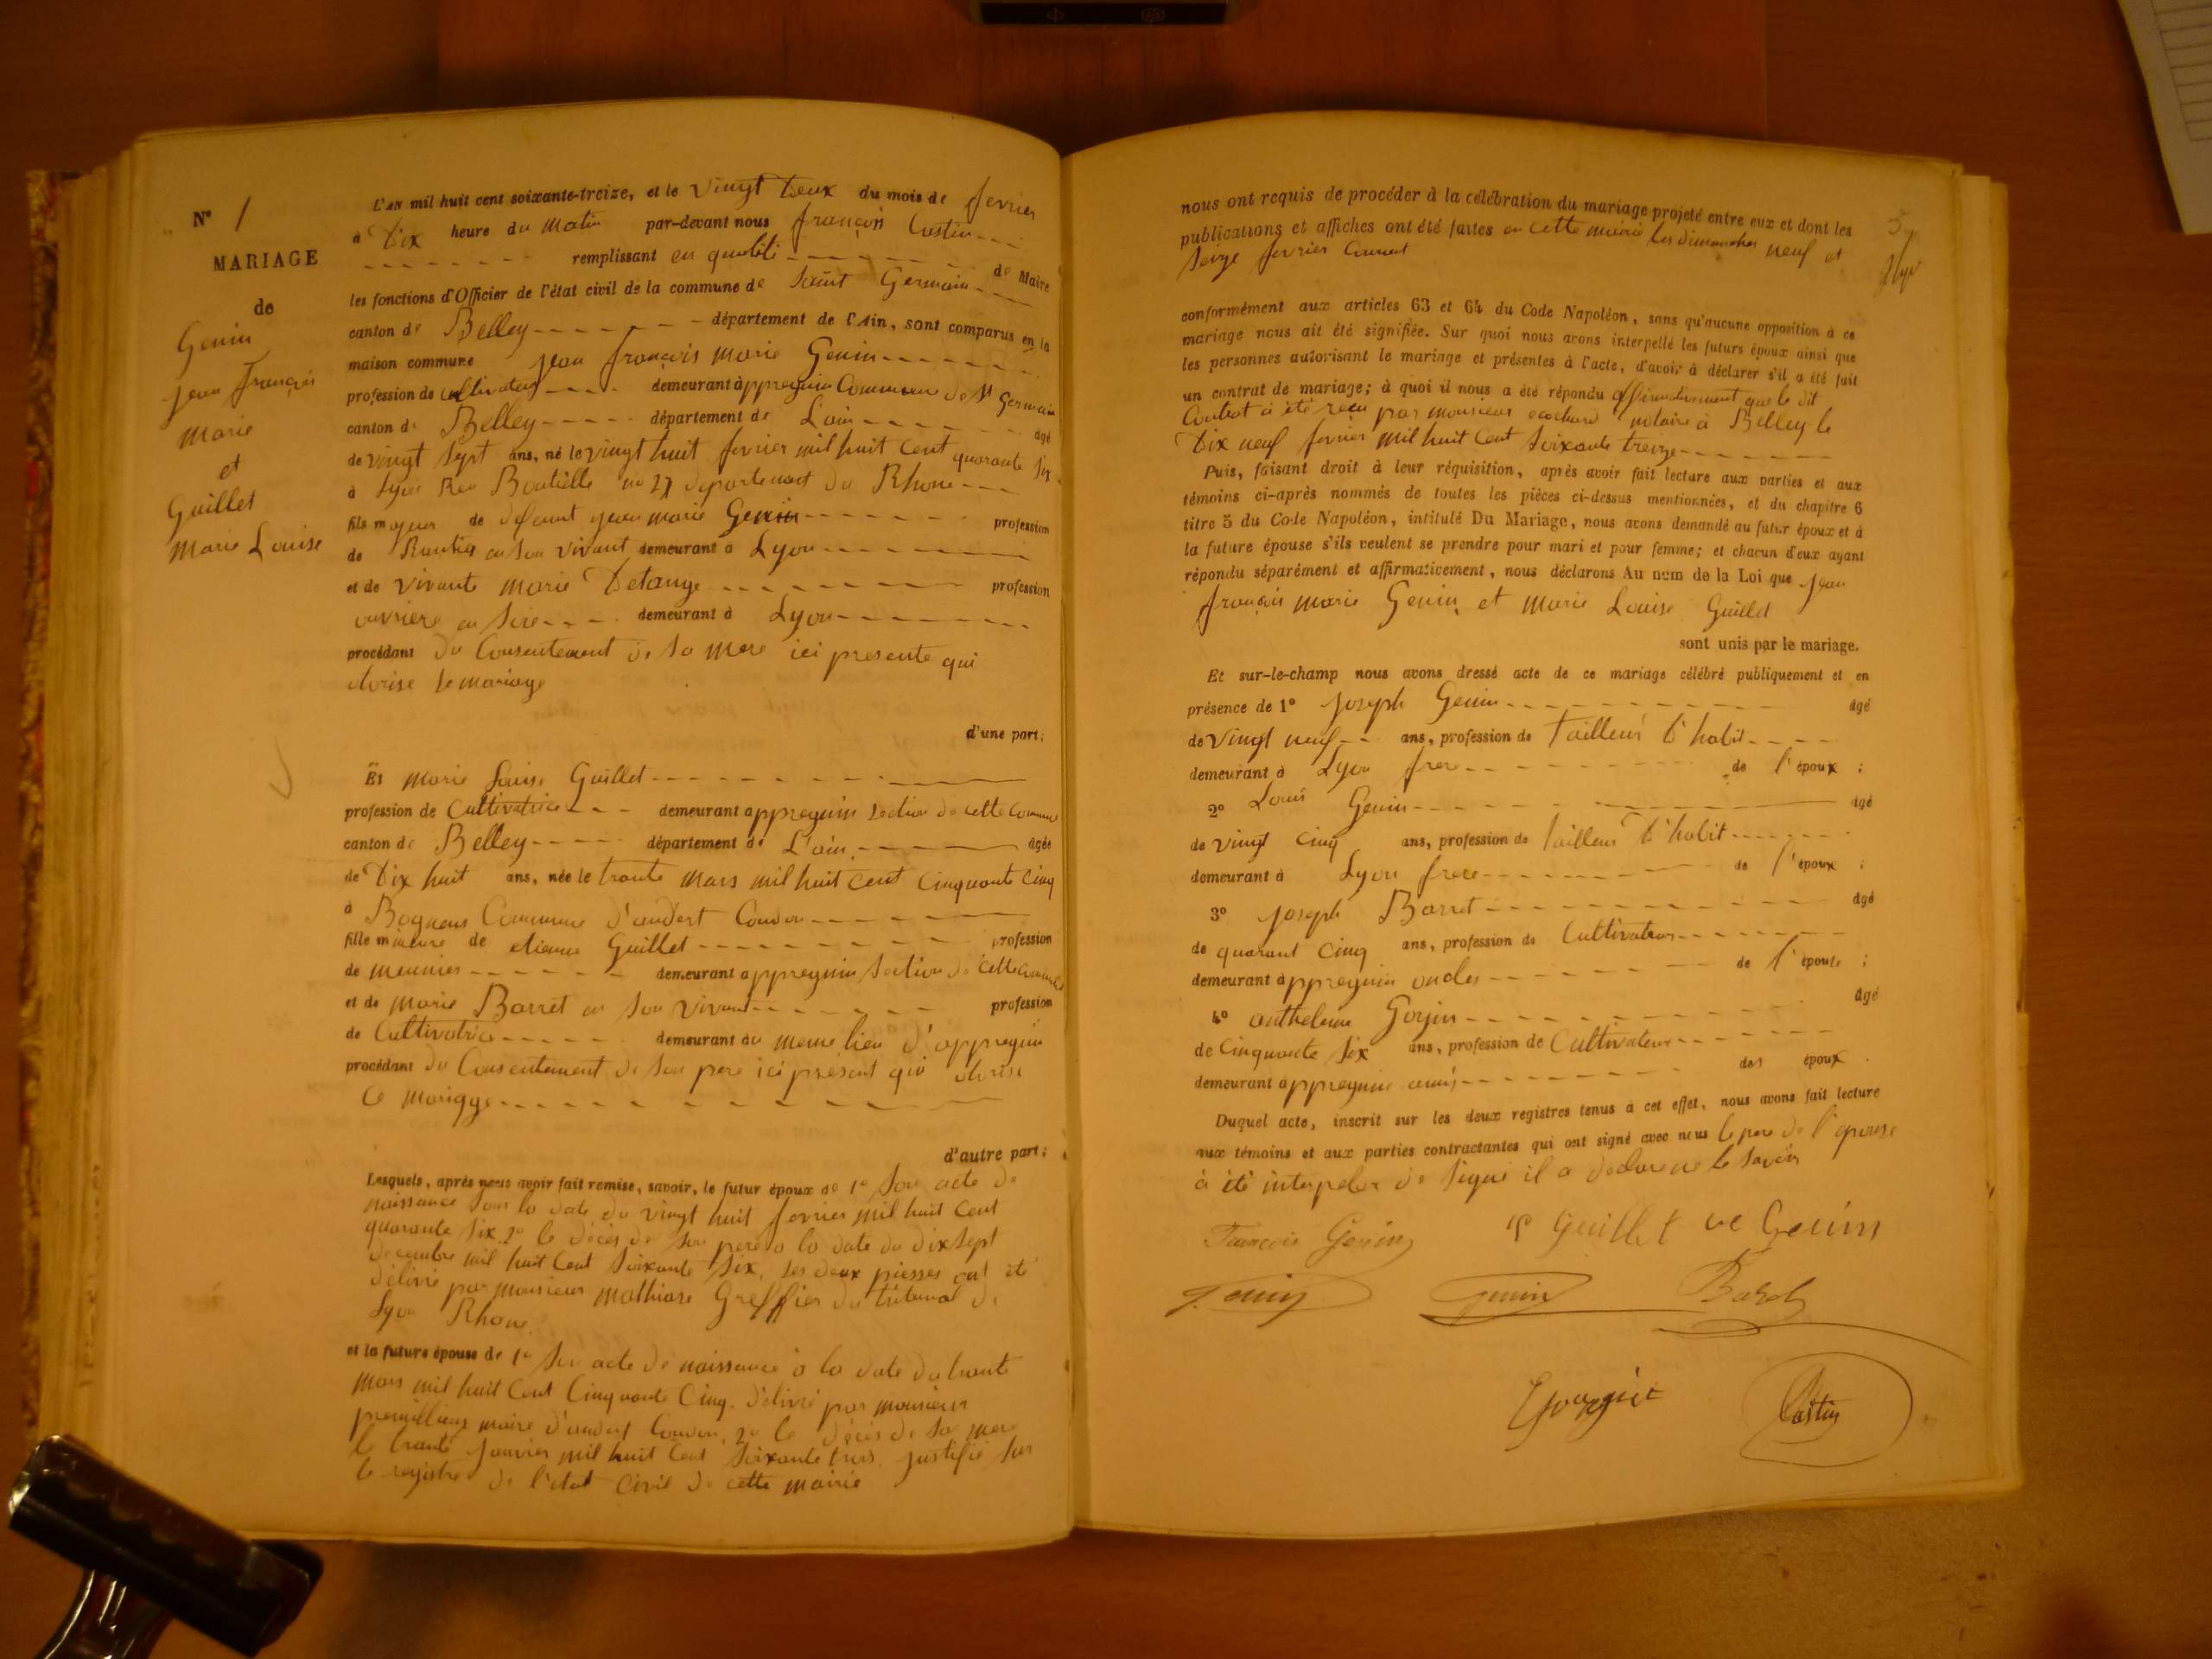 N° 1
MARIAGE
de
Genin
jean françois
marie
et
Guillet
Marie Louise
L'AN mil huit cent soixante-treize, et le vingt deux du mois de fevrier
à Dix heure du matin par-devant nous françois Costin
remplissant en qualité de Maire
les fonctions d'Officier de l'état civil de la commune de Saint Germain
canton de Belley département de l'Ain, sont comparus en la
maison commune jean françois marie Genin
profession de cultivateur demeurant à appregnin Commune de St Germain
canton de Belley département de L'ain agé
de vingt sept ans, né le vingt huit fevrier mil huit cent quarante six
à Lyon Rue no 27 departement du Rhone
fils majeur de defunt jean marie Genin profession
de Rentier en son vivant demeurant à Lyon
et de vivante marie Detange profession
ouvriere en soie demeurant à Lyon
procédant du Consentement de sa mere ici presente qui
otorise le mariage
d'une part;
Et marie Louise Guillet
profession de Cultivatrice demeurant a appregnin section de cette commune
canton de Belley département de L'ain agée
de Dix huit ans, née le trante mars mil huit cent cinquante cinq
à Bognens Commune d'andert Condon
fille mineure de etienne Guillet profession
de meunier demeurant a appregnin section de cette commune
et de marie Barret en son vivant profession
de Cultivatrice demeurant au meme lieu d'appregnin
procédant du Consentement de son pere ici présent qui otorise
ce mariage
d'autre part;
Lesquels, après nous avoir fait remise, savoir, le futur époux de 1° son acte de
naissance sous la date du vingt huit fevrier mil huit cent
quarante six 2° le décès de son pere a la date du dix sept
decembre mil huit cent soixante six, les deux piesses ont été
délivré par monsieur mathiare Greffier du tribunal de
Lyon Rhone
et la future épouse de 1° son acte de naissance a la date du trante
mars mil huit cent cinquante cinq. délivré par monsieur
premillieux maire d'andert Condon, 2° le décès de sa mere
le trante janvier mil huit cent soixante trois, justifié sur
le registre de l'état civil de cette mairie
nous ont requis de procéder à la célébration du mariage projeté entre eux et dont les
publications et affiches ont été faites en cette mairie les dimanches neuf et
seize fevrier courant
conformément aux articles 63 et 64 du Code Napoléon, sans qu'aucune opposition à ce
mariage nous ait été signifiée. Sur quoi nous avons interpellé les futurs époux ainsi que
les personnes autorisant le mariage et présentes à l'acte, d'avoir à déclarer s'il a été fait
un contrat de mariage; à quoi il nous a été répondu affirmativement que le dit
Contrat a été reçu par monsieur notaire à Belley le
Dix neuf fevrier mil huit cent soixante treize
Puis, faisant droit à leur réquisition, après avoir fait lecture aux parties et aux
témoins ci-après nommés de toutes les pièces ci-dessus mentionnées, et du chapitre 6
titre 5 du Code Napoléon, intitulé Du Mariage, nous avons demandé au futur époux et à
la future épouse s'ils veulent se prendre pour mari et pour femme; et chacun d'eux ayant
répondu séparément et affirmativement, nous déclarons Au nom de la Loi que jean
françois marie Genin et marie Louise Guillet
sont unis par le mariage.
Et sur-le-champ nous avons dressé acte de ce mariage célébré publiquement et en
présence de 1° joseph Genin agé
de vingt neuf ans, profession de Tailleur d'habit
demeurant à Lyon frere de l'époux ;
2° Louis Genin agé
de vingt cinq ans, profession de Tailleur d'habit
demeurant à Lyon frere de l'époux ;
3° joseph Barret agé
de quarant cinq ans, profession de Cultivateur
demeurant à appregnin oncles de l'épouse ;
4° anthelme Gorjin agé
de cinquante six ans, profession de Cultivateur
demeurant à appregnin amis des époux .
Duquel acte, inscrit sur les deux registres tenus à cet effet, nous avons fait lecture
aux témoins et aux parties contractantes qui ont signé avec nous le pere de l'epouse
à été interpeler de signé il a declare ne le savoir
François Genin
Guillet ve Genin
J. Genin
Genin
Baret
Costin